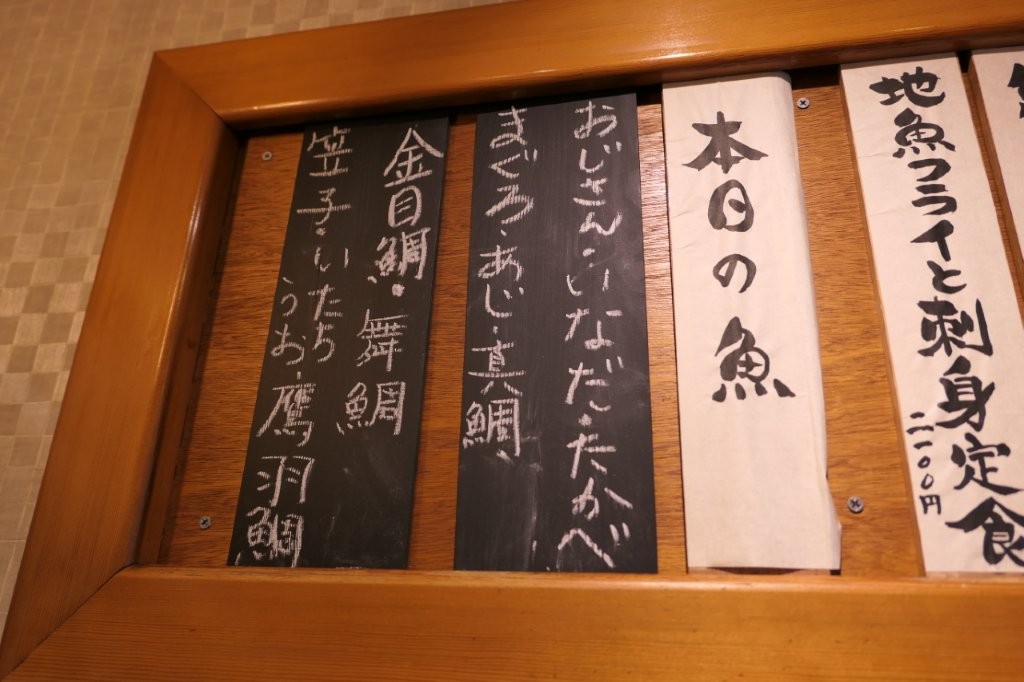 地魚フライと刺身定食
二一〇〇円
本日の魚
おじさん・いなだ・たかべ
まぐろ・あじ・真鯛・
金目鯛・舞鯛
笠子・いたち
うお・鷹羽鯛